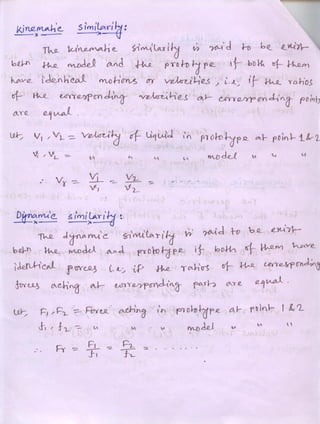 Kinematic similarity:
The kinematic similarity is said to be exist
betn the model and the prototype if both of them
have identical motions or velocities, i.e, if the ratios
of the corresponding velocities at corresponding points
are equal.
Let, V1, V2 = Velocity of liquid in prototype at point 1 & 2
v1, v2 = " " " model " " "
∴ Vr = V1/v1 = V2/v2 =
Dynamic similarity:
The dynamic similarity is said to be exist
betn the model and prototype if both of them have
identical forces i.e, if the ratios of the corresponding
forces acting at corresponding parts are equal.
Let, F1, F2 = Force acting in prototype at point 1 & 2
f1, f2 = " " " model " " "
∴ Fr = F1/f1 = F2/f2 = . . . . . .